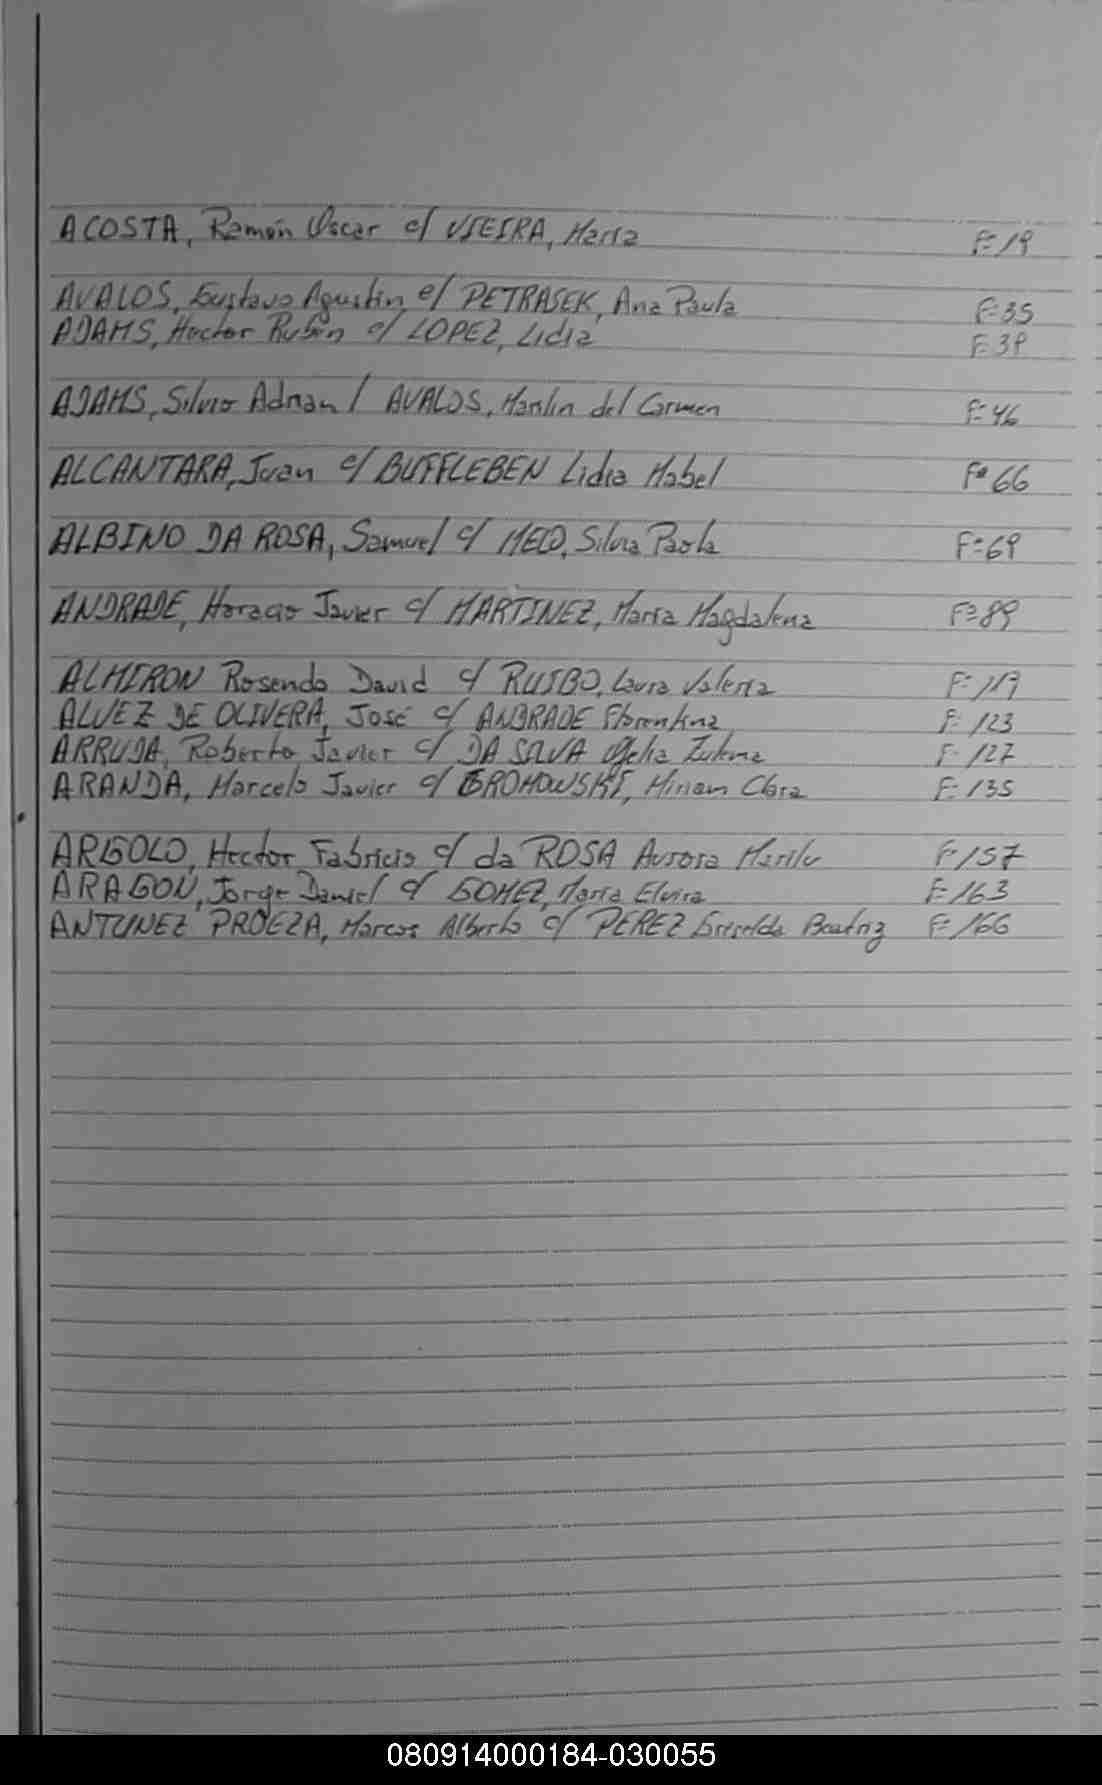 ACOSTA, Ramón Oscar c/ VIEIRA, María F=19
AVALOS, Gustavo Agustín c/ PETRASEK, Ana Paula F=35
ADAMS, Hector Rubén c/ LOPEZ, Lidia F=39
ADAMS, Silvio Adrian / AVALOS, Marilin del Carmen F=46
ALCANTARA, Juan c/ BUFFLEBEN Lidia Mabel Fº 66
ALBINO DA ROSA, Samuel c/ MELO, Silvia Paola F=69
ANDRADE, Horacio Javier c/ MARTINEZ, María Magdalena Fº 89
ALMIRON Rosendo David c/ Laura Valeria F= 119
ALVEZ DE OLIVERA, José c/ ANDRADE Florentina F= 123
ARRUDA, Roberto Javier c/ DA SILVA Ofelia Zulema F= 127
ARANDA, Marcelo Javier c/ GROHOWSKI, Miriam Clara F= 135
ARIGOLO, Hector Fabricio c/ da ROSA Aurora Marilu F= 157
ARAGON, Jorge Daniel c/ GOMEZ, María Elvira F= 163
ANTUNEZ PROEZA, Marcos Alberto c/ PEREZ Griselda Beatriz F= 166
080914000184-030055